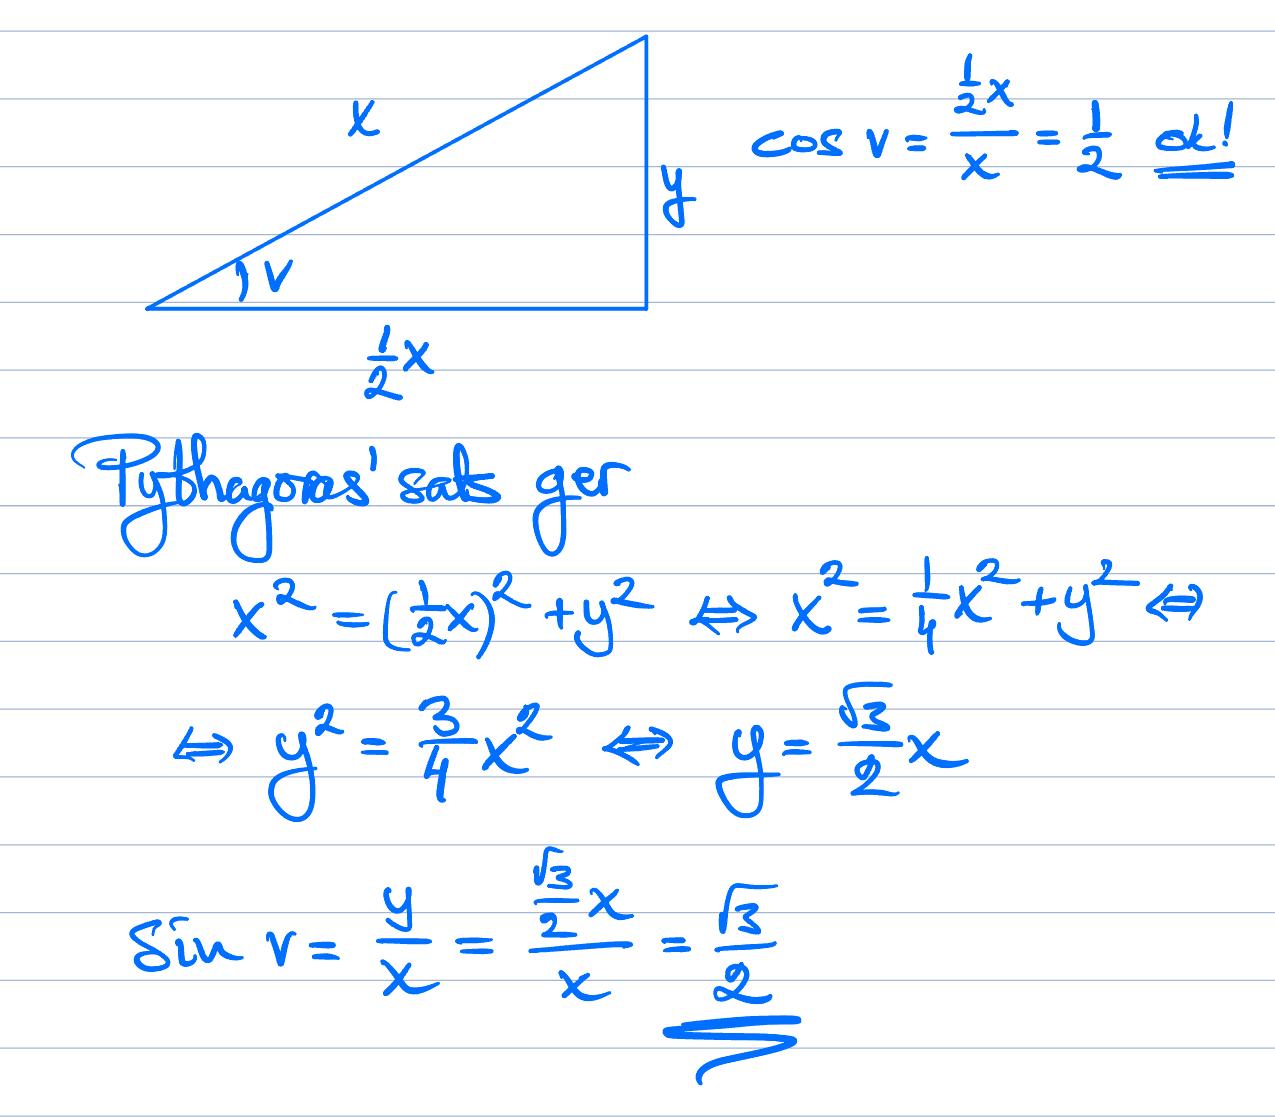 x
cos v = (1/2 x)/x = 1/2 ok!
y
v
1/2 x
Pythagoras' sats ger
x² = (1/2 x)² + y² ⇔ x² = 1/4 x² + y² ⇔
⇔ y² = 3/4 x² ⇔ y = √3/2 x
sin v = y/x = (√3/2 x)/x = √3/2